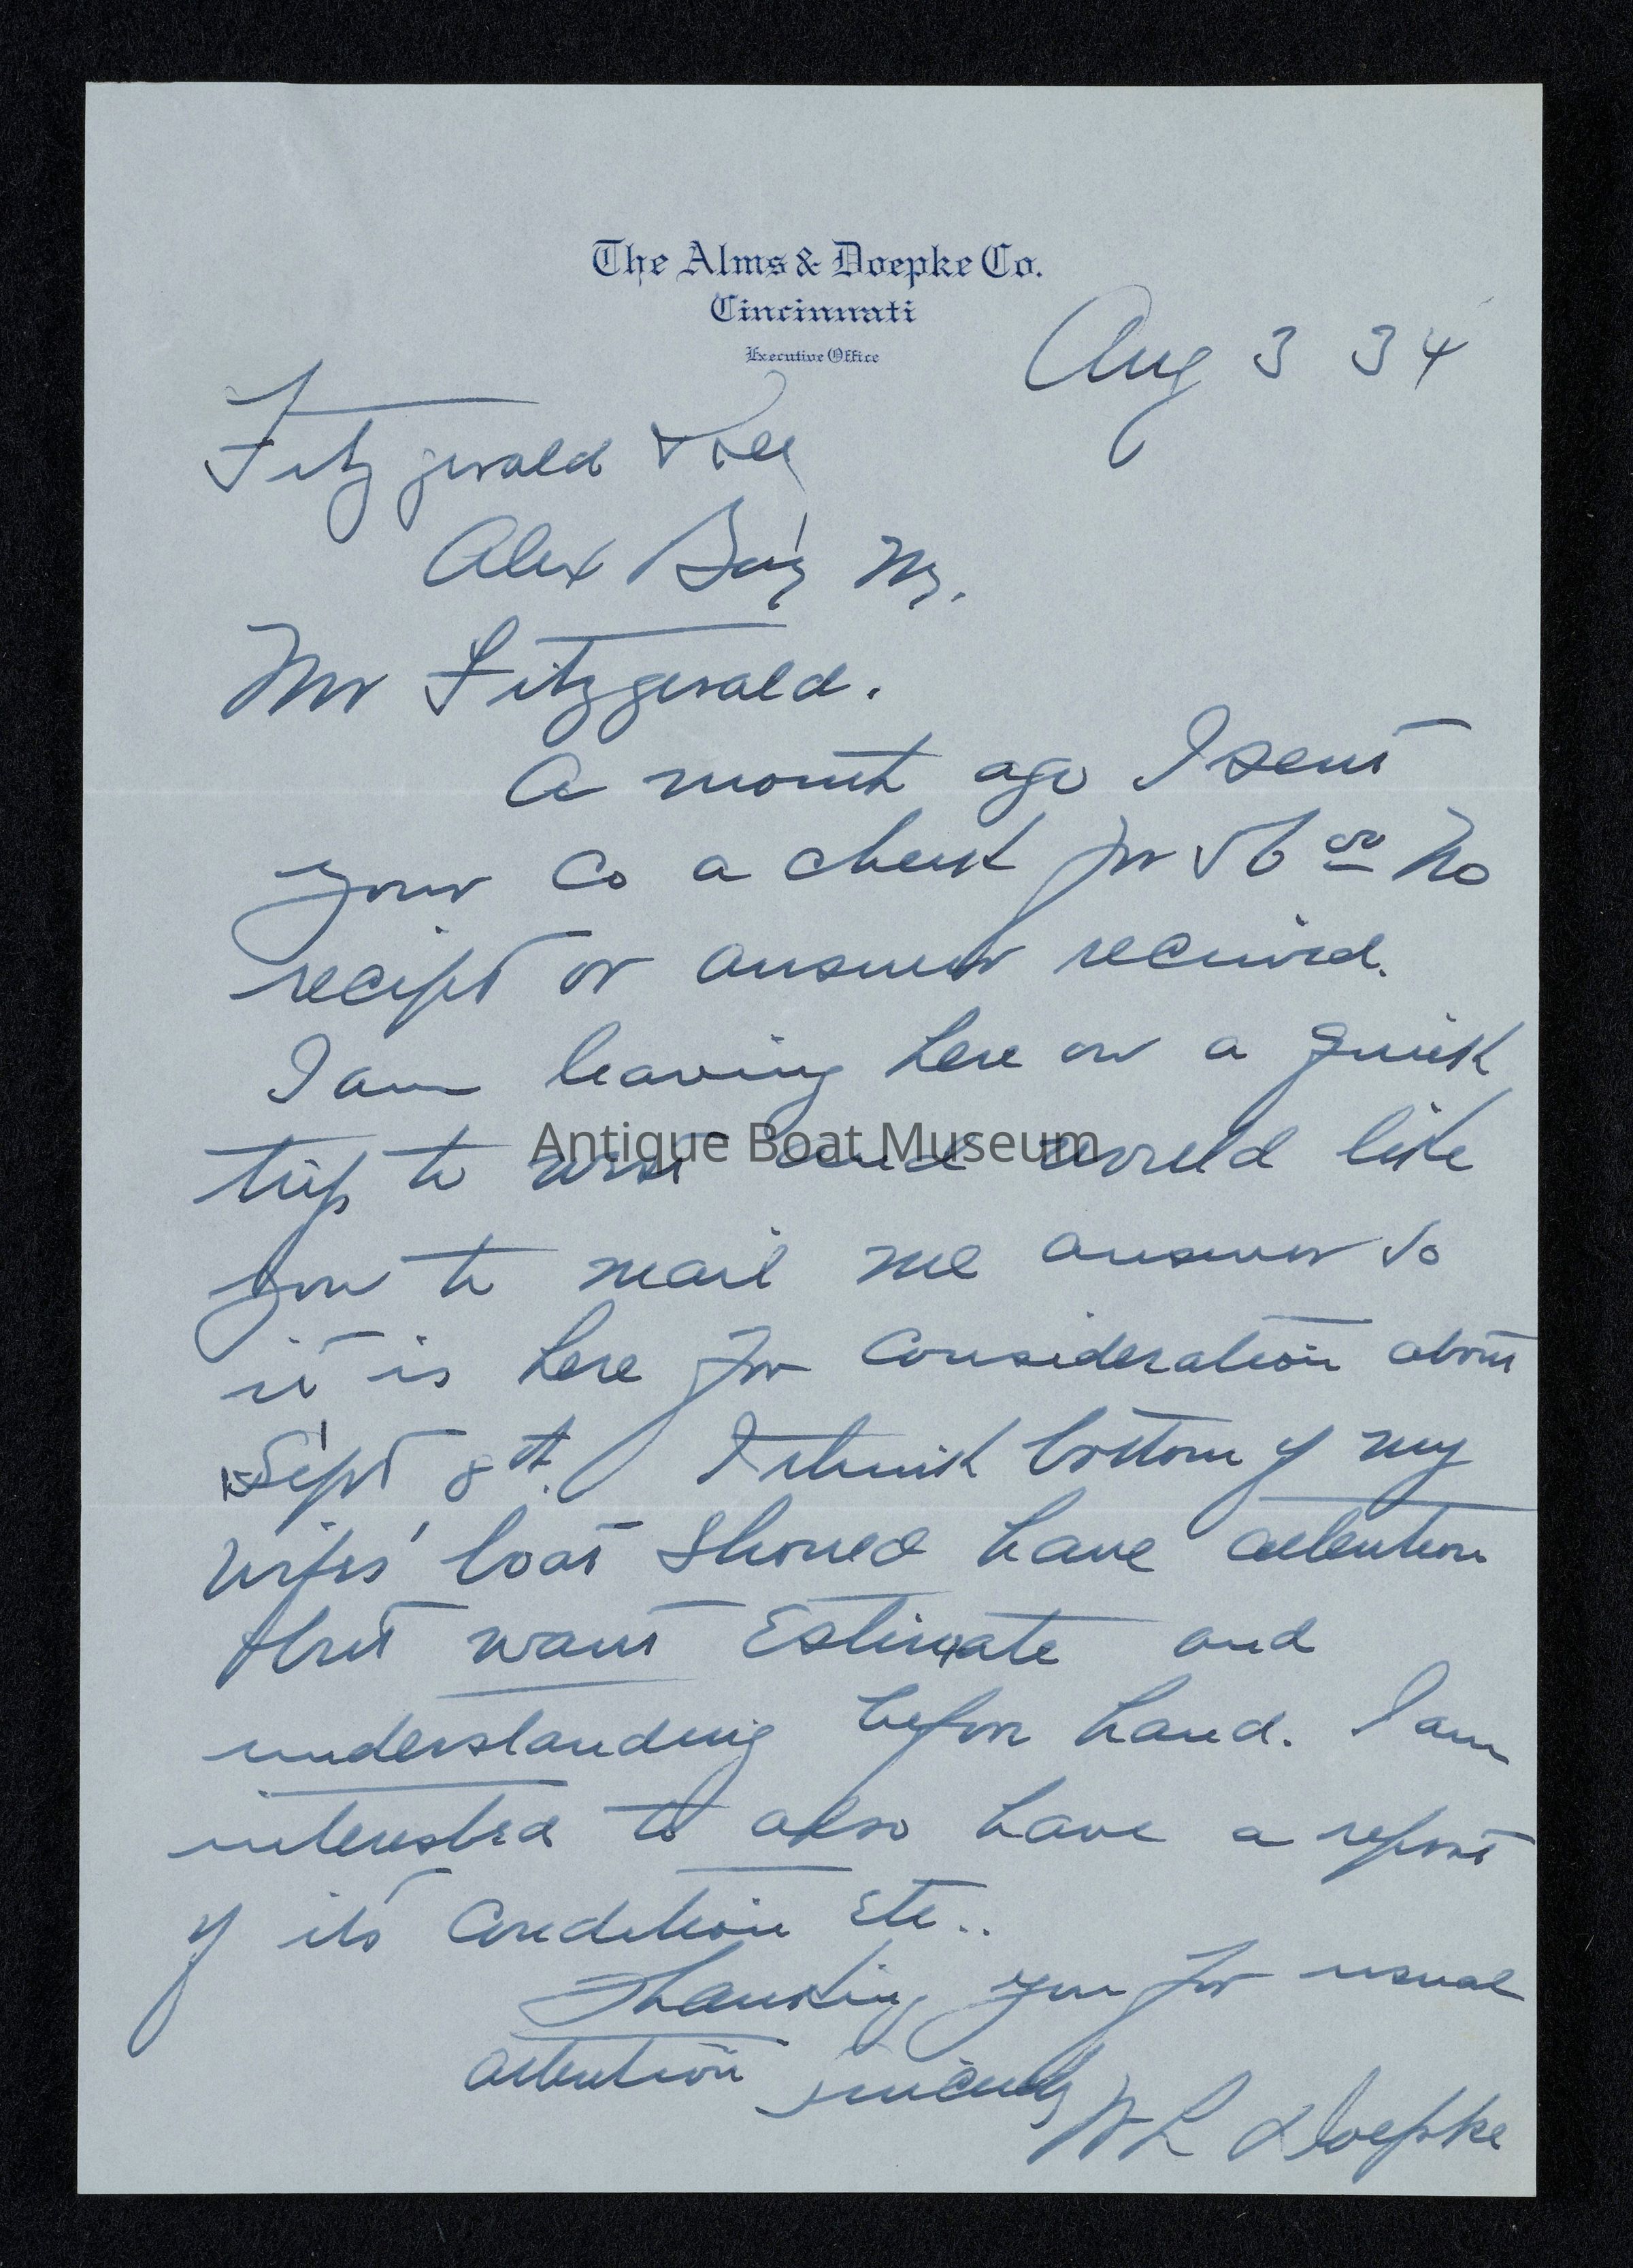 The Alms & Doepke Co.
Cincinnati
Executive Office
Aug 3 34
Fitzgerald & Lee
Alex Bay Ny.
Mr Fitzgerald.
A month ago I sent
your Co a check for 00 No
recipt or answer received.
I am leaving here on a quick
trip to west and would like
Antique Boat Museum
you to mail me answer so
it is here for consideration about
Sept 8th. I think bottom of my
wifes' boat should have attention
but want Estimate and
understanding before hand. I am
interested to also have a report
of its condition Etc..
Thanking you for usual
attention sincerely
W L Doepke